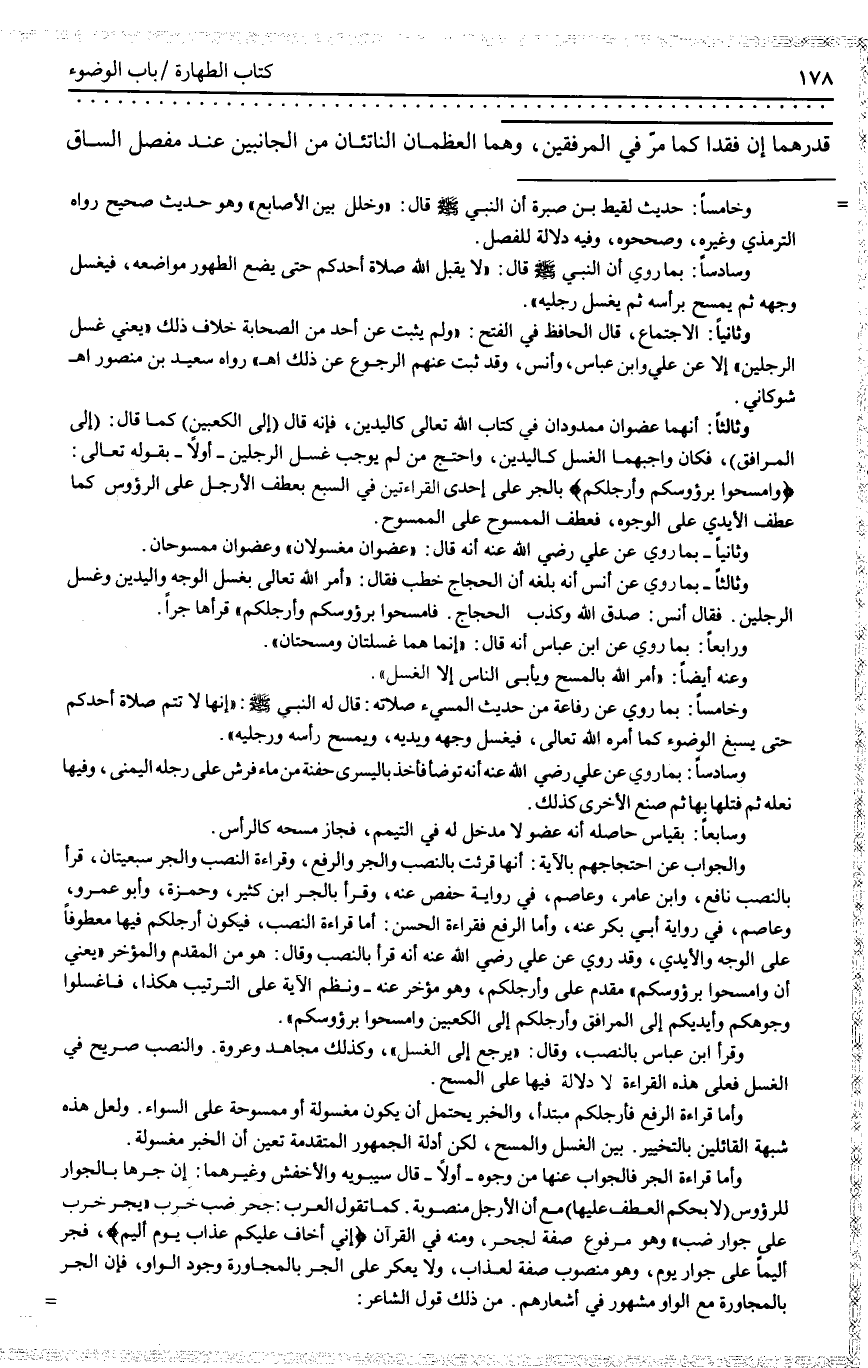 ١٧٨
كتاب الطهارة / باب الوضوء
قدرهما إن فقدا كما مرّ في المرفقين، وهما العظمان الناتئان من الجانبين عند مفصل الساق
= وخامساً: حديث لقيط بن صبرة أن النبي ﷺ قال: «وخلل بين الأصابع» وهو حديث صحيح رواه
الترمذي وغيره، وصححوه، وفيه دلالة للفصل.
وسادساً: بما روي أن النبي ﷺ قال: «لا يقبل الله صلاة أحدكم حتى يضع الطهور مواضعه، فيغسل
وجهه ثم يمسح برأسه ثم يغسل رجليه».
وثانياً: الاجتماع، قال الحافظ في الفتح: «ولم يثبت عن أحد من الصحابة خلاف ذلك «يعني غسل
الرجلين» إلا عن علي وابن عباس، وأنس، وقد ثبت عنهم الرجوع عن ذلك اهـ» رواه سعيد بن منصور اهـ
شوكاني.
وثالثاً: أنهما عضوان ممدودان في كتاب الله تعالى كاليدين، فإنه قال (إلى الكعبين) كما قال: (إلى
المرافق)، فكان واجبهما الغسل كاليدين، واحتج من لم يوجب غسل الرجلين ـ أولاً ـ بقوله تعالى:
﴿وامسحوا برؤوسكم وأرجلكم﴾ بالجر على إحدى القراءتين في السبع بعطف الأرجل على الرؤوس كما
عطف الأيدي على الوجوه، فعطف الممسوح على الممسوح.
وثانياً ـ بما روي عن علي رضي الله عنه أنه قال: «عضوان مغسولان» وعضوان ممسوحان.
وثالثاً ـ بما روي عن أنس أنه بلغه أن الحجاج خطب فقال: «أمر الله تعالى بغسل الوجه واليدين وغسل
الرجلين. فقال أنس: صدق الله وكذب الحجاج. فامسحوا برؤوسكم وأرجلكم» قرأها جراً.
ورابعاً: بما روي عن ابن عباس أنه قال: «إنما هما غسلتان ومسحتان».
وعنه أيضاً: «أمر الله بالمسح ويأبى الناس إلا الغسل».
وخامساً: بما روي عن رفاعة من حديث المسيء صلاته: قال له النبي ﷺ: «إنها لا تتم صلاة أحدكم
حتى يسبغ الوضوء كما أمره الله تعالى، فيغسل وجهه ويديه، ويمسح رأسه ورجليه».
وسادساً: بما روي عن علي رضي الله عنه أنه توضأ فأخذ باليسرى حفنة من ماء فرش على رجله اليمنى، وفيها
نعله ثم فتلها بها ثم صنع الأخرى كذلك.
وسابعاً: بقياس حاصله أنه عضو لا مدخل له في التيمم، فجاز مسحه كالرأس.
والجواب عن احتجاجهم بالآية: أنها قرئت بالنصب والجر والرفع، وقراءة النصب والجر سبعيتان، قرأ
بالنصب نافع، وابن عامر، وعاصم، في رواية حفص عنه، وقرأ بالجر ابن كثير، وحمزة، وأبو عمرو،
وعاصم، في رواية أبي بكر عنه، وأما الرفع فقراءة الحسن: أما قراءة النصب، فيكون أرجلكم فيها معطوفاً
على الوجه والأيدي، وقد روي عن علي رضي الله عنه أنه قرأ بالنصب وقال: هو من المقدم والمؤخر «يعني
أن وامسحوا برؤوسكم» مقدم على وأرجلكم، وهو مؤخر عنه ـ ونظم الآية على الترتيب هكذا، فاغسلوا
وجوهكم وأيديكم إلى المرافق وأرجلكم إلى الكعبين وامسحوا برؤوسكم».
وقرأ ابن عباس بالنصب، وقال: «يرجع إلى الغسل»، وكذلك مجاهد وعروة. والنصب صريح في
الغسل فعلى هذه القراءة لا دلالة فيها على المسح.
وأما قراءة الرفع فأرجلكم مبتدأ، والخبر يحتمل أن يكون مغسولة أو ممسوحة على السواء. ولعل هذه
شبهة القائلين بالتخيير. بين الغسل والمسح، لكن أدلة الجمهور المتقدمة تعين أن الخبر مغسولة.
وأما قراءة الجر فالجواب عنها من وجوه ـ أولاً ـ قال سيبويه والأخفش وغيرهما: إن جرها بالجوار
للرؤوس (لا بحكم العطف عليها) مع أن الأرجل منصوبة. كما تقول العرب: جحر ضب خرب «يجر خرب
على جوار ضب» وهو مرفوع صفة لجحر، ومنه في القرآن ﴿إني أخاف عليكم عذاب يوم أليم﴾، فجر
أليماً على جوار يوم، وهو منصوب صفة لعذاب، ولا يعكر على الجر بالمجاورة وجود الواو، فإن الجر
بالمجاورة مع الواو مشهور في أشعارهم. من ذلك قول الشاعر: =